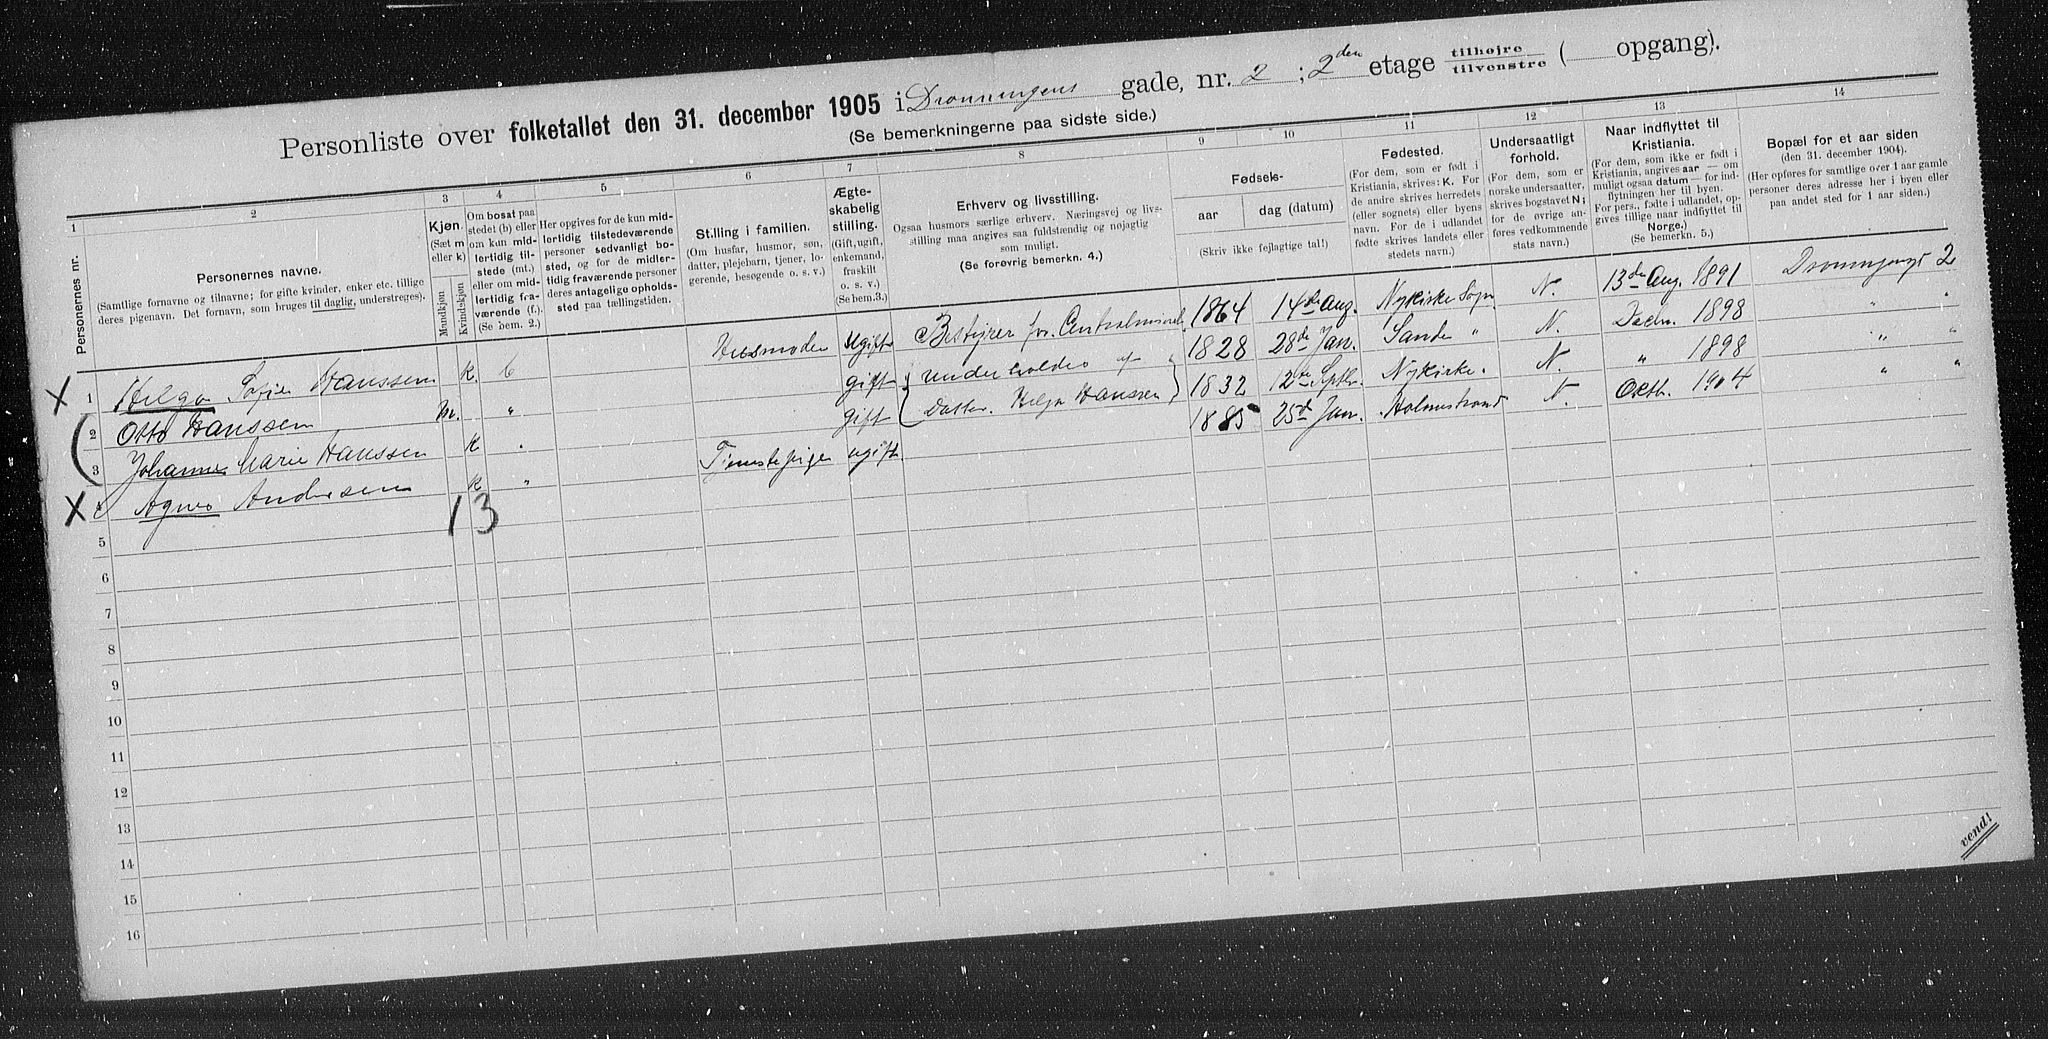 Personliste over folketallet den 31. december 1905 i Dronningens gade, nr. 2 ; 2den etage tilhøjre tilvenstre ( opgang).
(Se bemerkningerne paa sidste side.)
1 2 3 4 5 6 7 8 9 10 11 12 13 14
Personernes nr.
Personernes navne.
(Samtlige fornavne og tilnavne; for gifte kvinder, enker etc. tillige
deres pigenavn. Det fornavn, som bruges til daglig, understreges).
Kjøn.
(Sæt m
eller k)
Mandkjøn
Kvindekjøn
Om bosat paa
stedet (b) eller
om kun mid-
lertidig til-
stede (mt.)
eller om mid-
lertidig fra-
værende (f.).
(Se bem. 2.)
Her opgives for de kun mid-
lertidig tilstedeværende
personer sedvanligt bo-
sted, og for de midler-
tidig fraværende personer
deres antagelige opholds-
sted paa tællingstiden.
Stilling i familien.
(Om husfar, husmor, søn,
datter, plejebarn, tjener, lo-
gerende, besøgende o. s. v.)
Ægte-
skabelig
stilling.
(Gift, ugift,
enkemand,
fraskilt
o. s. v.)
(Se bem.3.)
Erhverv og livsstilling.
Ogsaa husmors særlige erhverv. Næringsvej og livs-
stilling maa angives saa fuldstændig og nøjagtig
som muligt.
(Se forøvrig bemerkn. 4.)
Fødsels-
aar dag (datum)
(Skriv ikke fejlagtige tal!)
Fødested.
(For dem, som er født i
Kristiania, skrives: K. For
de andre skrives herredets
(eller sognets) eller byens
navn. For de i udlandet
fødte skrives landets eller
stedets navn.)
Undersaatligt
forhold.
(For dem, som er
norske undersaatter,
skrives bogstavet N;
for de øvrige an-
føres vedkommende
stats navn.)
Naar indflyttet til
Kristiania.
(For dem, som ikke er født i
Kristiania, angives aar — om
muligt ogsaa datum — for ind-
flytningen her til byen.
For pers., fødte i udlandet, op-
gives tillige naar indflyttet til
Norge.)
(Se bemerkn. 5.)
Bopæl for et aar siden
(den 31. december 1904).
(Her opføres for samtlige over 1 aar gamle
personer deres adresse her i byen eller
paa andet sted for 1 aar siden.)
X 1 Helga Sofie Hanssen k. b Husmoder Ugift Bestyrer for 1864 14de Aug. Nykirke Sogn N. 13de Aug. 1891 2
2 Otto Hanssen m. " gift underholdes af 1828 28de Jan. Sande " N. 1898 " "
3 Marie Hanssen k " gift Datter. Helga Hanssen 1832 12te Nykirke. N. " 1898 " "
X 4 Agnes Andresen k " Tjenestepige ugift. 1885 25de Jan. Holmestrand N 1904
1 3
5
6
7
8
9
10
11
12
13
14
15
16
vend!